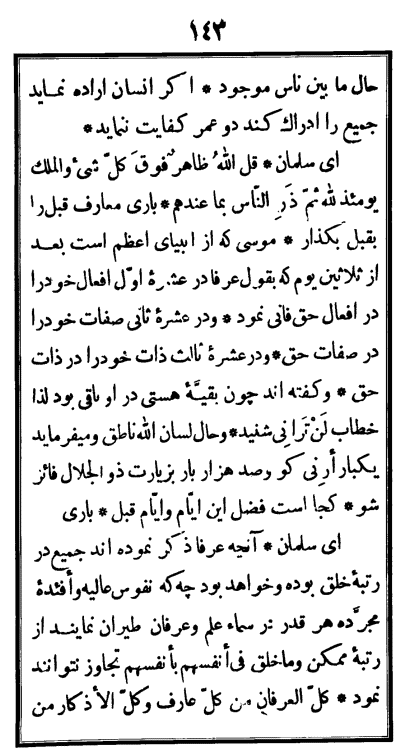 ١٤٣
حال ما بین ناس موجود * اکر انسان اراده نماید
جمیع را ادراك کند دو عمر کفایت ننماید*
ای سلمان * قل اللهُ ظاهرٌ فوقَ کلّ شیء والملك
یومئذ للّه ثمّ ذَرِ النّاس بما عندهم * باری معارف قبل را
بقبل بکذار * موسی که از انبیای اعظم است بعد
از ثلاثین یوم که بقول عرفا در عشرهٔ اوّل افعال خودرا
در افعال حق فانی نمود * ودر عشرهٔ ثانی صفات خودرا
در صفات حق * ودر عشرهٔ ثالث ذات خودرا در ذات
حق * وکفته اند چون بقیّهٔ هستی در او باقی بود لذا
خطاب لَنْ تَرانِی شنید * وحال لسان الله ناطق ومیفرماید
یکبار أرنی کو وصد هزار بار بزیارت ذو الجلال فائز
شو * کجا است فضل این ایّام وایّام قبل * باری
ای سلمان * آنچه عرفا ذکر نموده اند جمیع در
رتبهٔ خلق بوده وخواهد بود چه که نفوس عالیه وأفئدهٔ
مجرّده هر قدر در سماء علم وعرفان طیران نمایند از
رتبهٔ ممکن وما خلق فی أنفسهم بأنفسهم تجاوز نتوانند
نمود * کلّ العرفان من کلّ عارف وکلّ الأذکار من